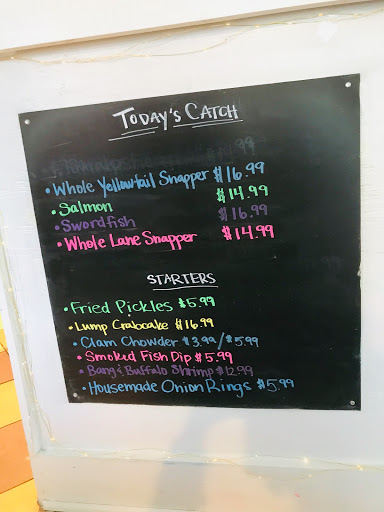 TODAY'S CATCH
• Whole Yellowtail Snapper $16.99
• Salmon $14.99
• Swordfish $16.99
• Whole Lane Snapper $14.99
STARTERS
• Fried Pickles $5.99
• Lump Crabcake $16.99
• Clam Chowder $3.99/$5.99
• Smoked Fish Dip $5.99
• Bang & Buffalo Shrimp $12.99
• Housemade Onion Rings $5.99